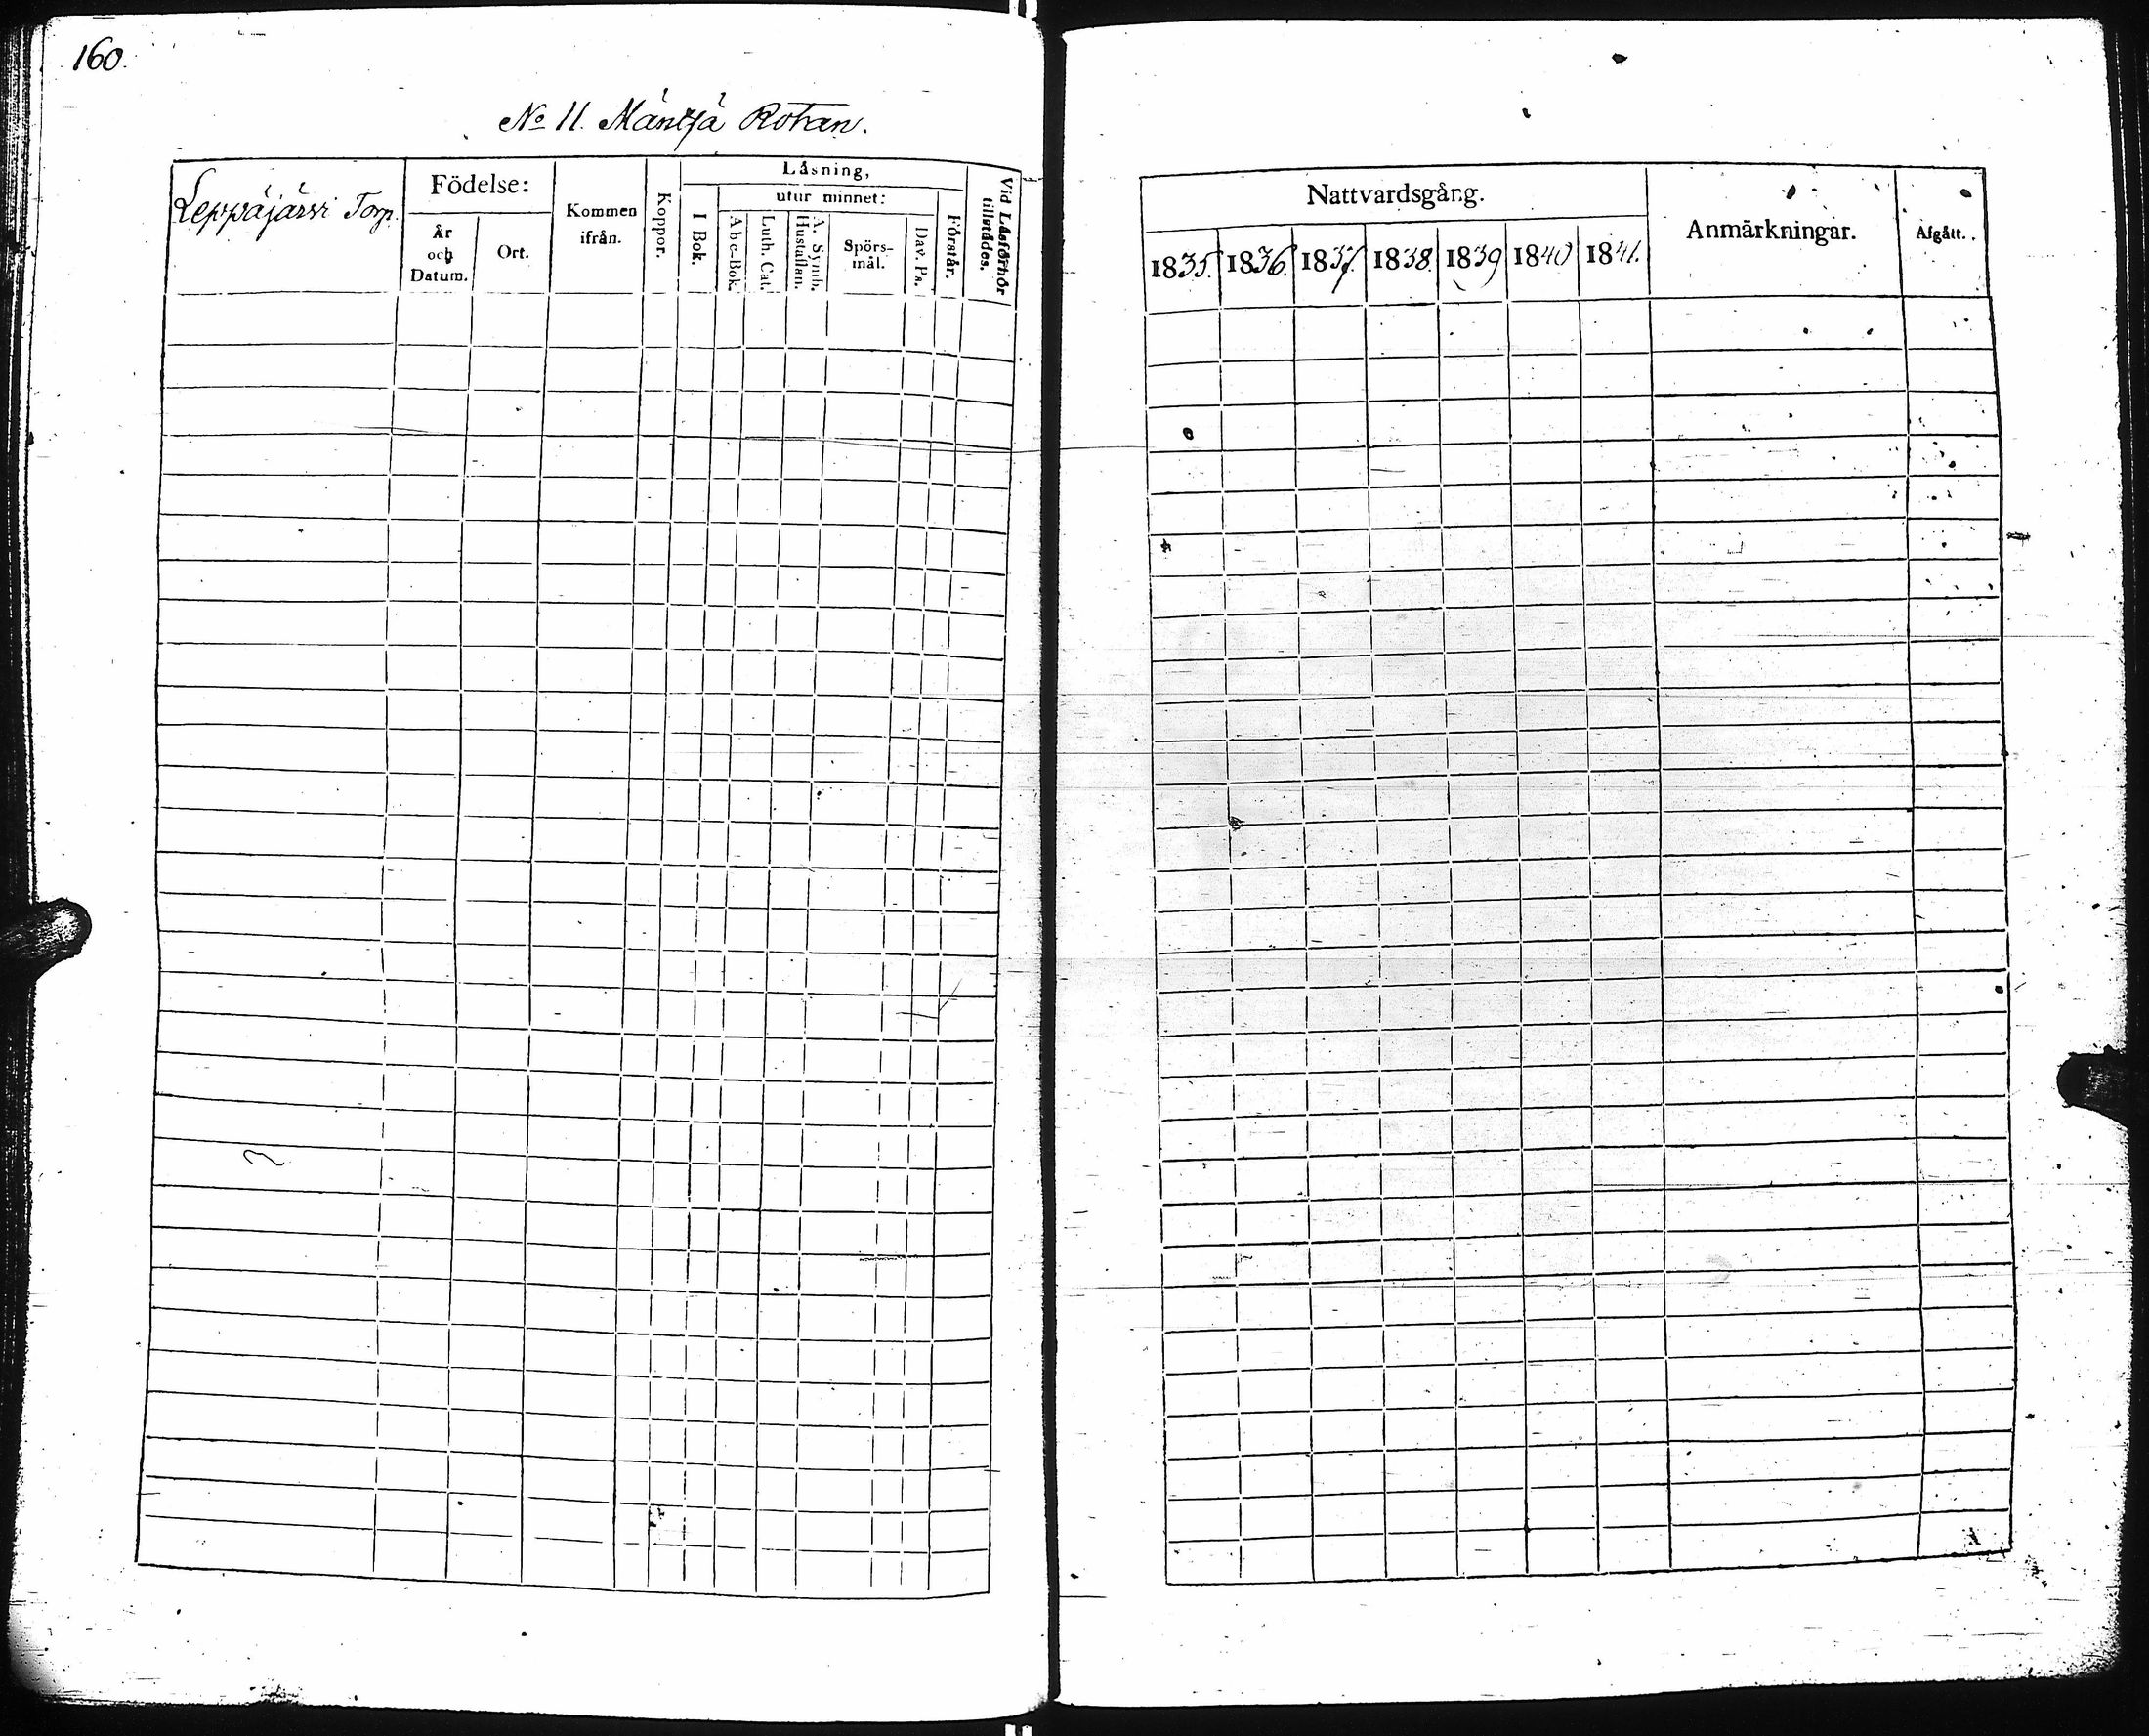 160.
No 11. Mäntjä Rotan.
Leppäjärvi Torp.
Födelse:
År och Datum.
Ort.
Kommen ifrån.
Koppor.
Låsning,
I Bok.
utur minnet:
Abc-Bok.
Luth. Cat.
A. Symb. Hustaflan.
Spörsmål.
Dav. Ps.
Förstår.
Vid Låsförhör tillstådes.
Nattvardsgång.
1835. 1836. 1837. 1838. 1839 1840 1841.
Anmärkningar.
Afgått.